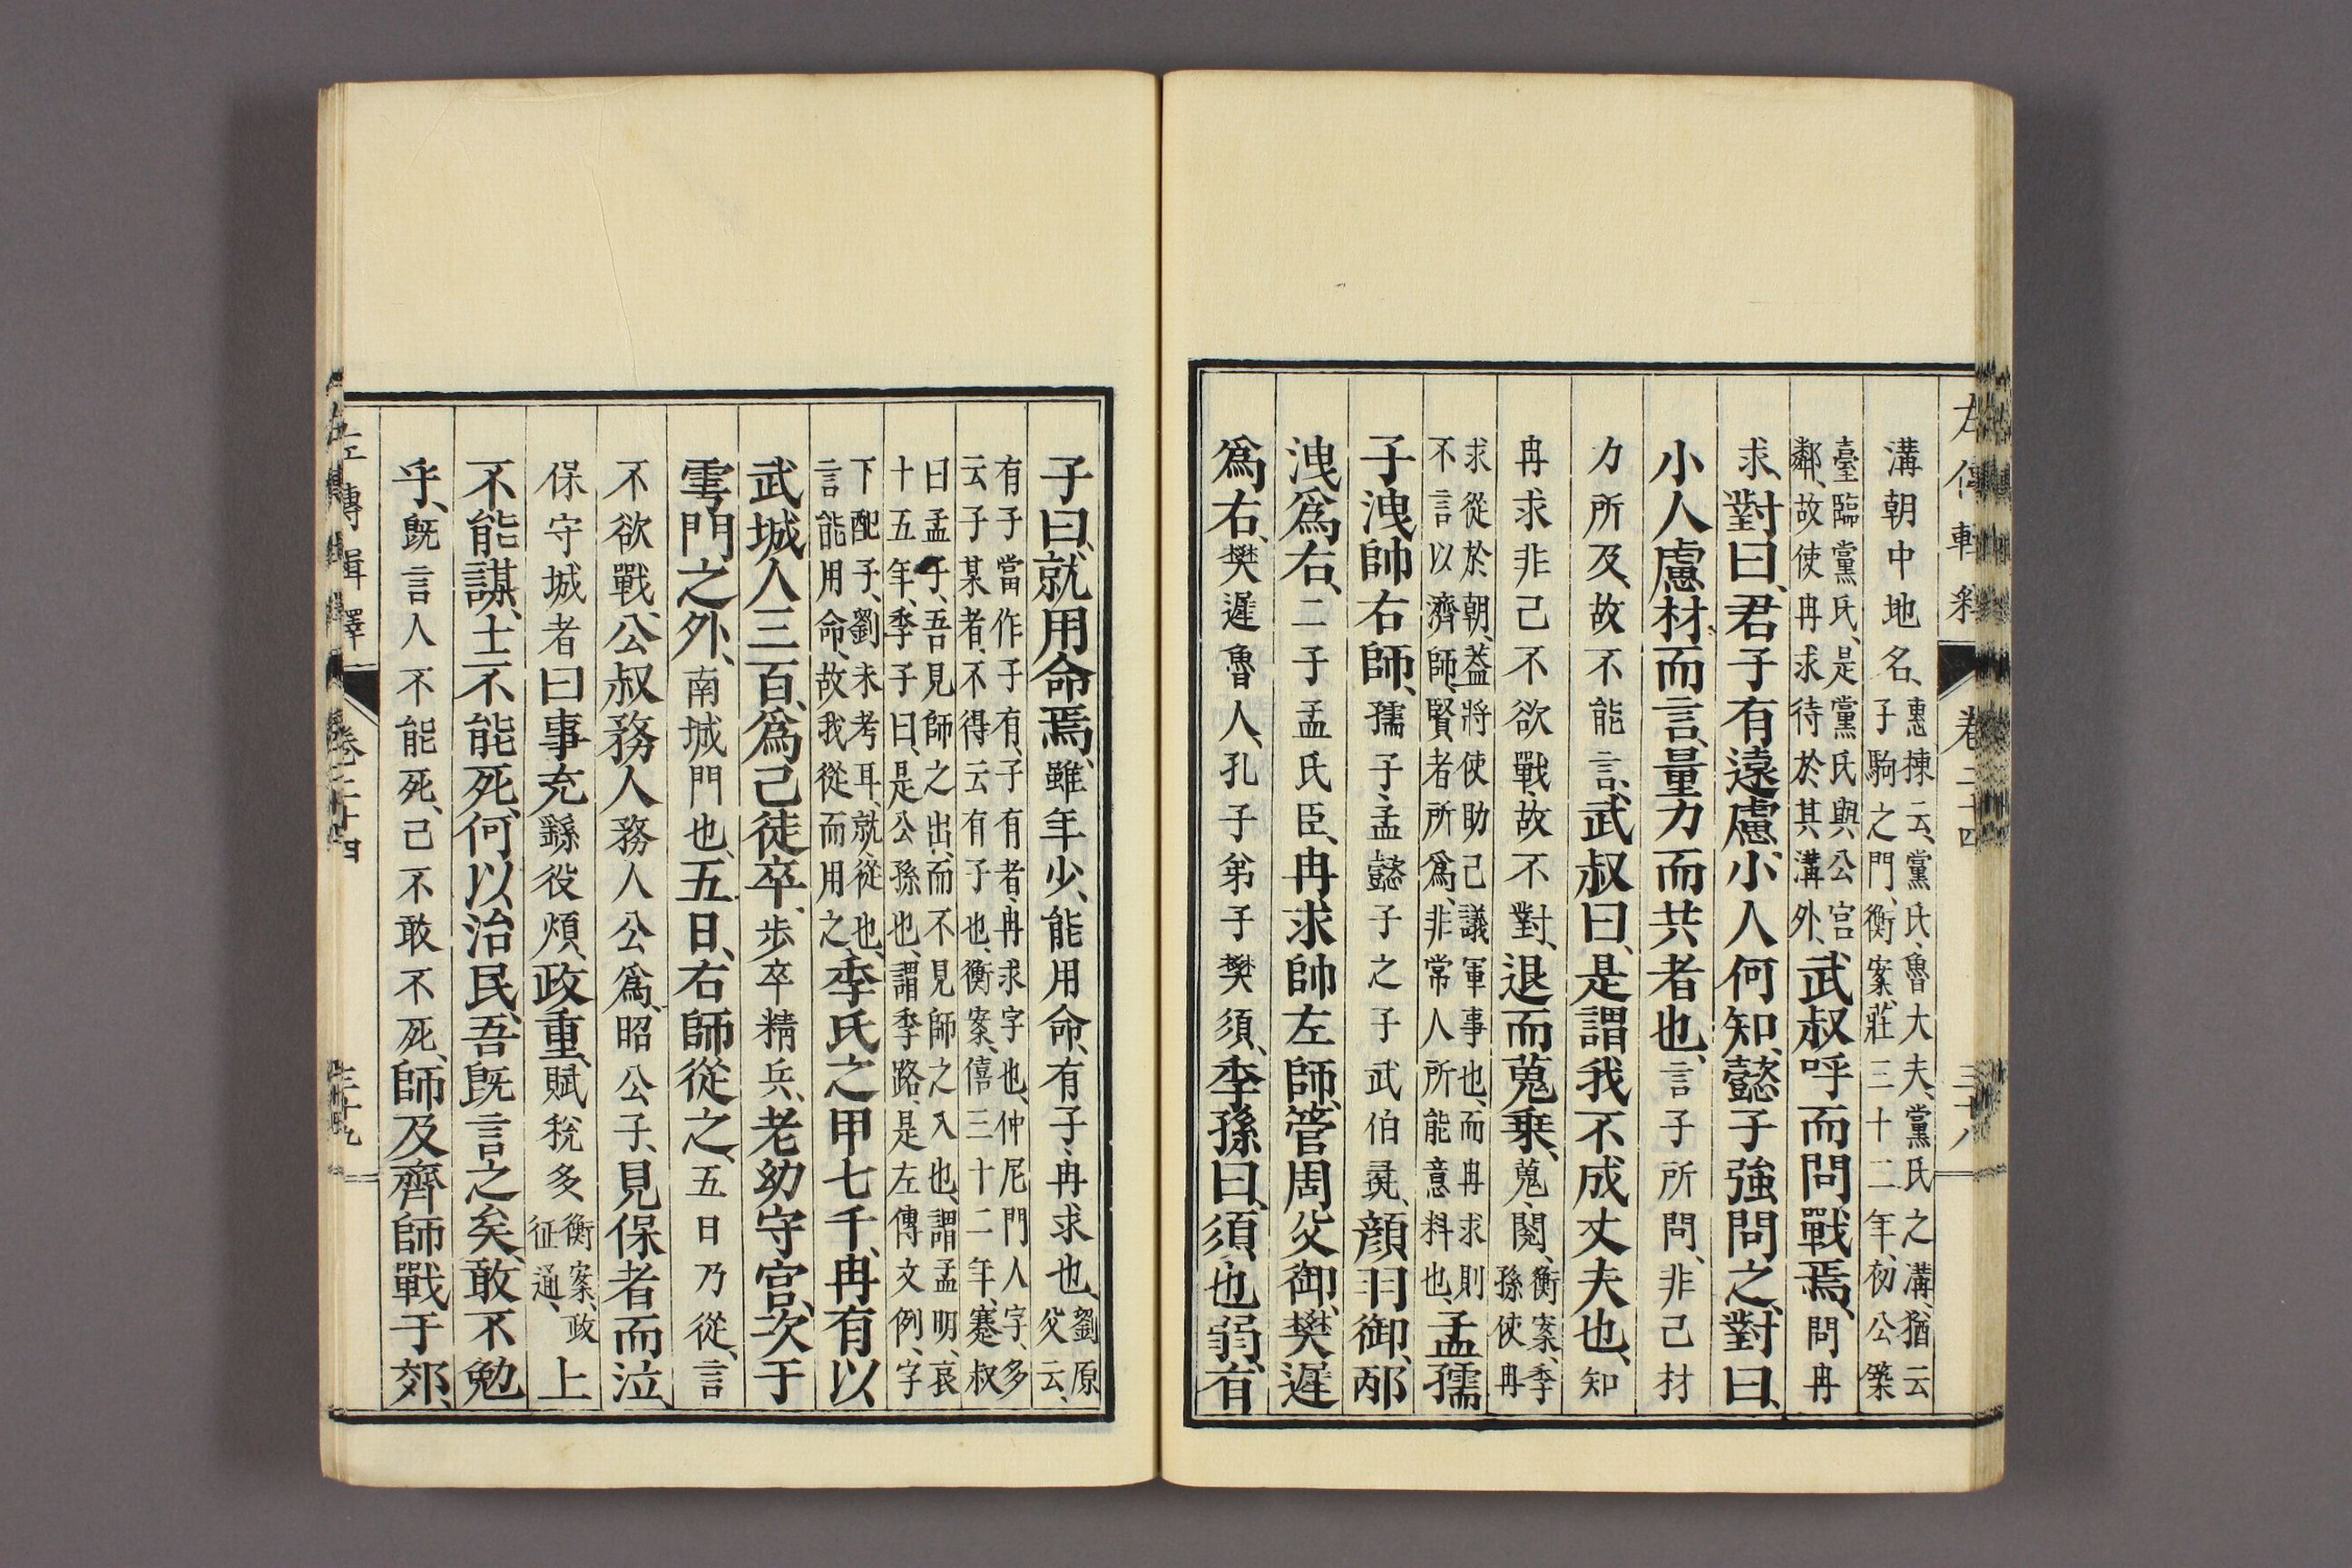 左傳輯釋 卷二十四 三十八
溝朝中地名、惠棟云、黨氏、魯大夫、黨氏之溝、猶云子駒之門、衡案、莊三十二年、初公築
臺臨黨氏、是黨氏與公宮鄰、故使冉求待於其溝外、武叔呼而問戰焉、問冉
求、對曰、君子有遠慮、小人何知、懿子強問之、對曰、
小人慮材而言、量力而共者也、言子所問、非己材
力所及、故不能言、武叔曰、是謂我不成丈夫也、知
冉求非己不欲戰、故不對、退而蒐乘、蒐、閱、衡案、季孫使冉
求從於朝、葢將使助己議軍事也、而冉求則不言以濟師、賢者所爲、非常人所能意料也、孟孺
子洩帥右師、孺子、孟懿子之子武伯彘、顏羽御、邴
洩爲右、二子孟氏臣、冉求帥左師、管周父御、樊遲
爲右、樊遲魯人、孔子弟子樊須、季孫曰、須也弱、有
子曰、就用命焉、雖年少、能用命、有子、冉求也、劉原父云、
有子當作子有、子有者、冉求字也、仲尼門人字、多云子某者、不得云有子也、衡案、僖三十二年、蹇叔
曰孟子、吾見師之出、而不見師之入也、謂孟明、哀十五年、季子曰、是公孫也、謂季路、是左傳文例、字
下配子、劉未考耳、就、從也、言能用命、故我從而用之、季氏之甲七千、冉有以
武城人三百、爲己徒卒、步卒精兵、老幼守宮、次于
雩門之外、南城門也、五日、右師從之、五日乃從、言
不欲戰、公叔務人務人公爲、昭公子、見保者而泣、
保守城者曰事充繇役煩、政重、賦稅多衡案、政征通、上
不能謀、士不能死、何以治民、吾旣言之矣、敢不勉
乎、旣言人不能死、己不敢不死、師及齊師戰于郊、
左傳輯釋 卷二十四 三十九